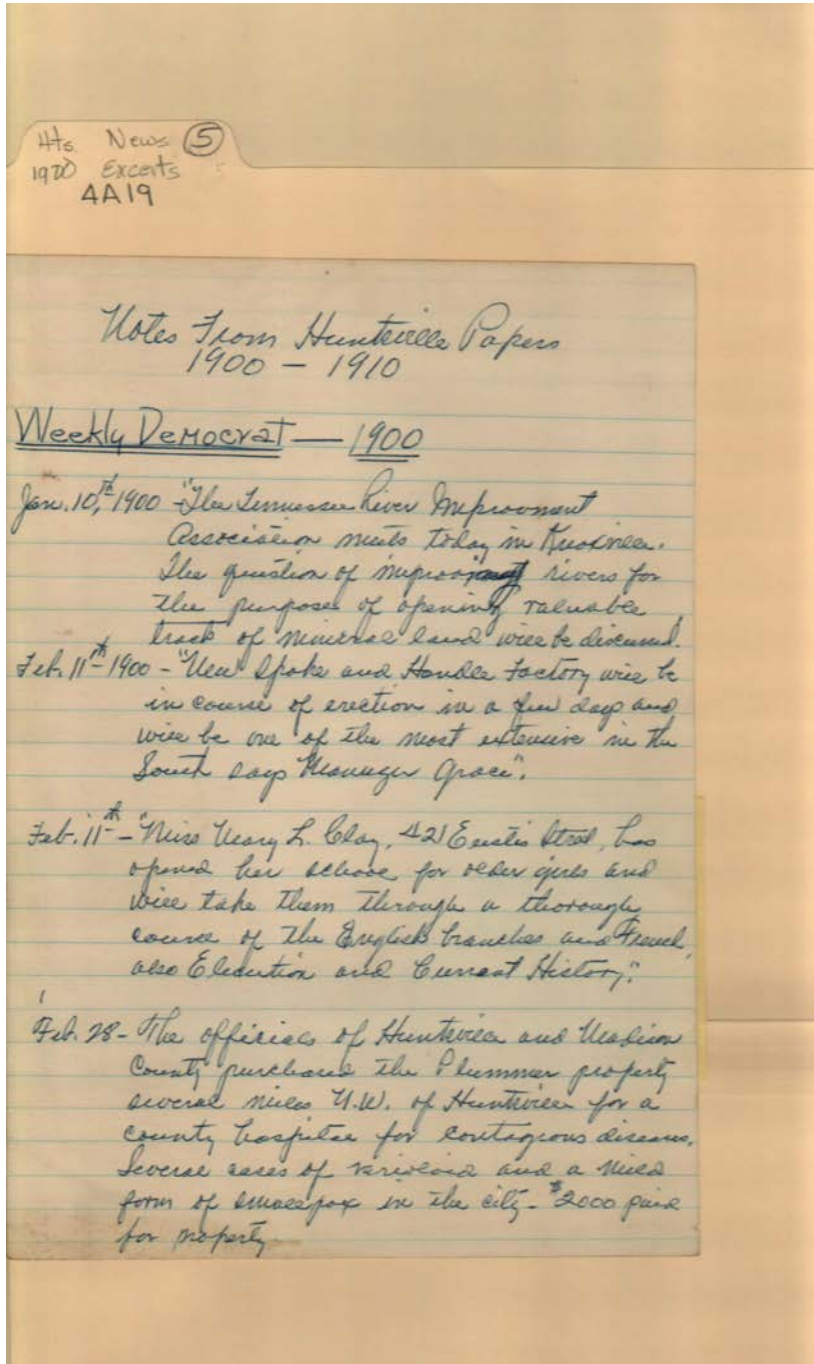 Hts. News ⑤
1900 Excerts
4A19
Notes From Huntsville Papers
1900 - 1910
Weekly Democrat — 1900
Jan. 10,th 1900 - "The Tennessee River Improvment
Association meets today in Knoxville.
The question of improving rivers for
the purposes of opening valuable
track of mineral land will be discussed.
Feb. 11th 1900 - "New Spoke and Handle Factory will be
in course of erection in a few days and
will be one of the most extensive in the
South says Manager Grace".
Feb. 11th - "Miss Mary L. Clay, 421 Eustis Street, has
opened her school for older girls and
will take them through a thorough
course of the English branches and French,
also Elocution and Current History."
Feb. 28 - The officials of Huntsville and Madison
County purchased the Plummer property
several miles N.W. of Huntsville for a
county hospital for contagious diseases.
Several cases of varioloid and a mild
form of smallpox in the city - $2000 paid
for property